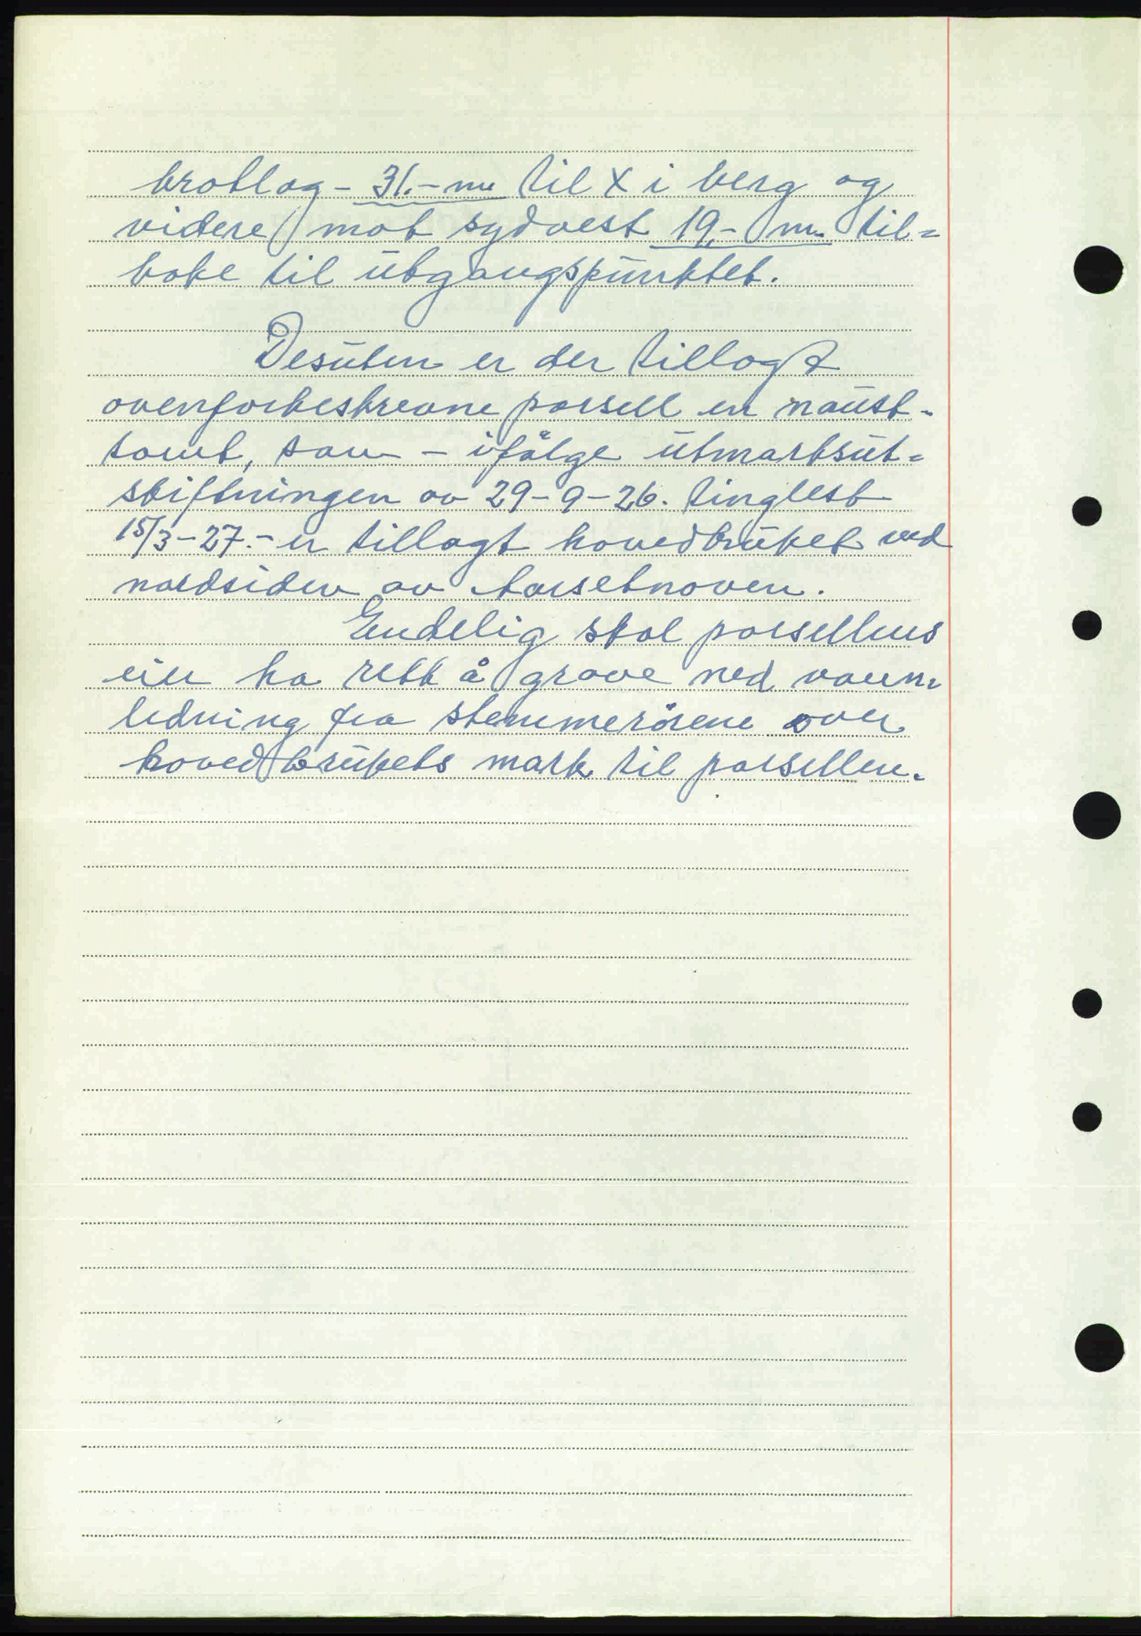 brotlag - 31.- m. til X i berg og
videre mot sydvest 19,- m. til=
bake til utgangspunktet.
Desuten er der tillagt
ovenforbeskrevne parsell en naust-
tomt, som - ifølge utmarksut=
skiftningen av 29-9-26. tinglest
15/3-27.- er tillagt hovedbruket ved
nordsiden av
Endelig skal parsellens
eier ha rett å grave ned vann=
ledning fra over
hovedbrukets mark til parsellen.